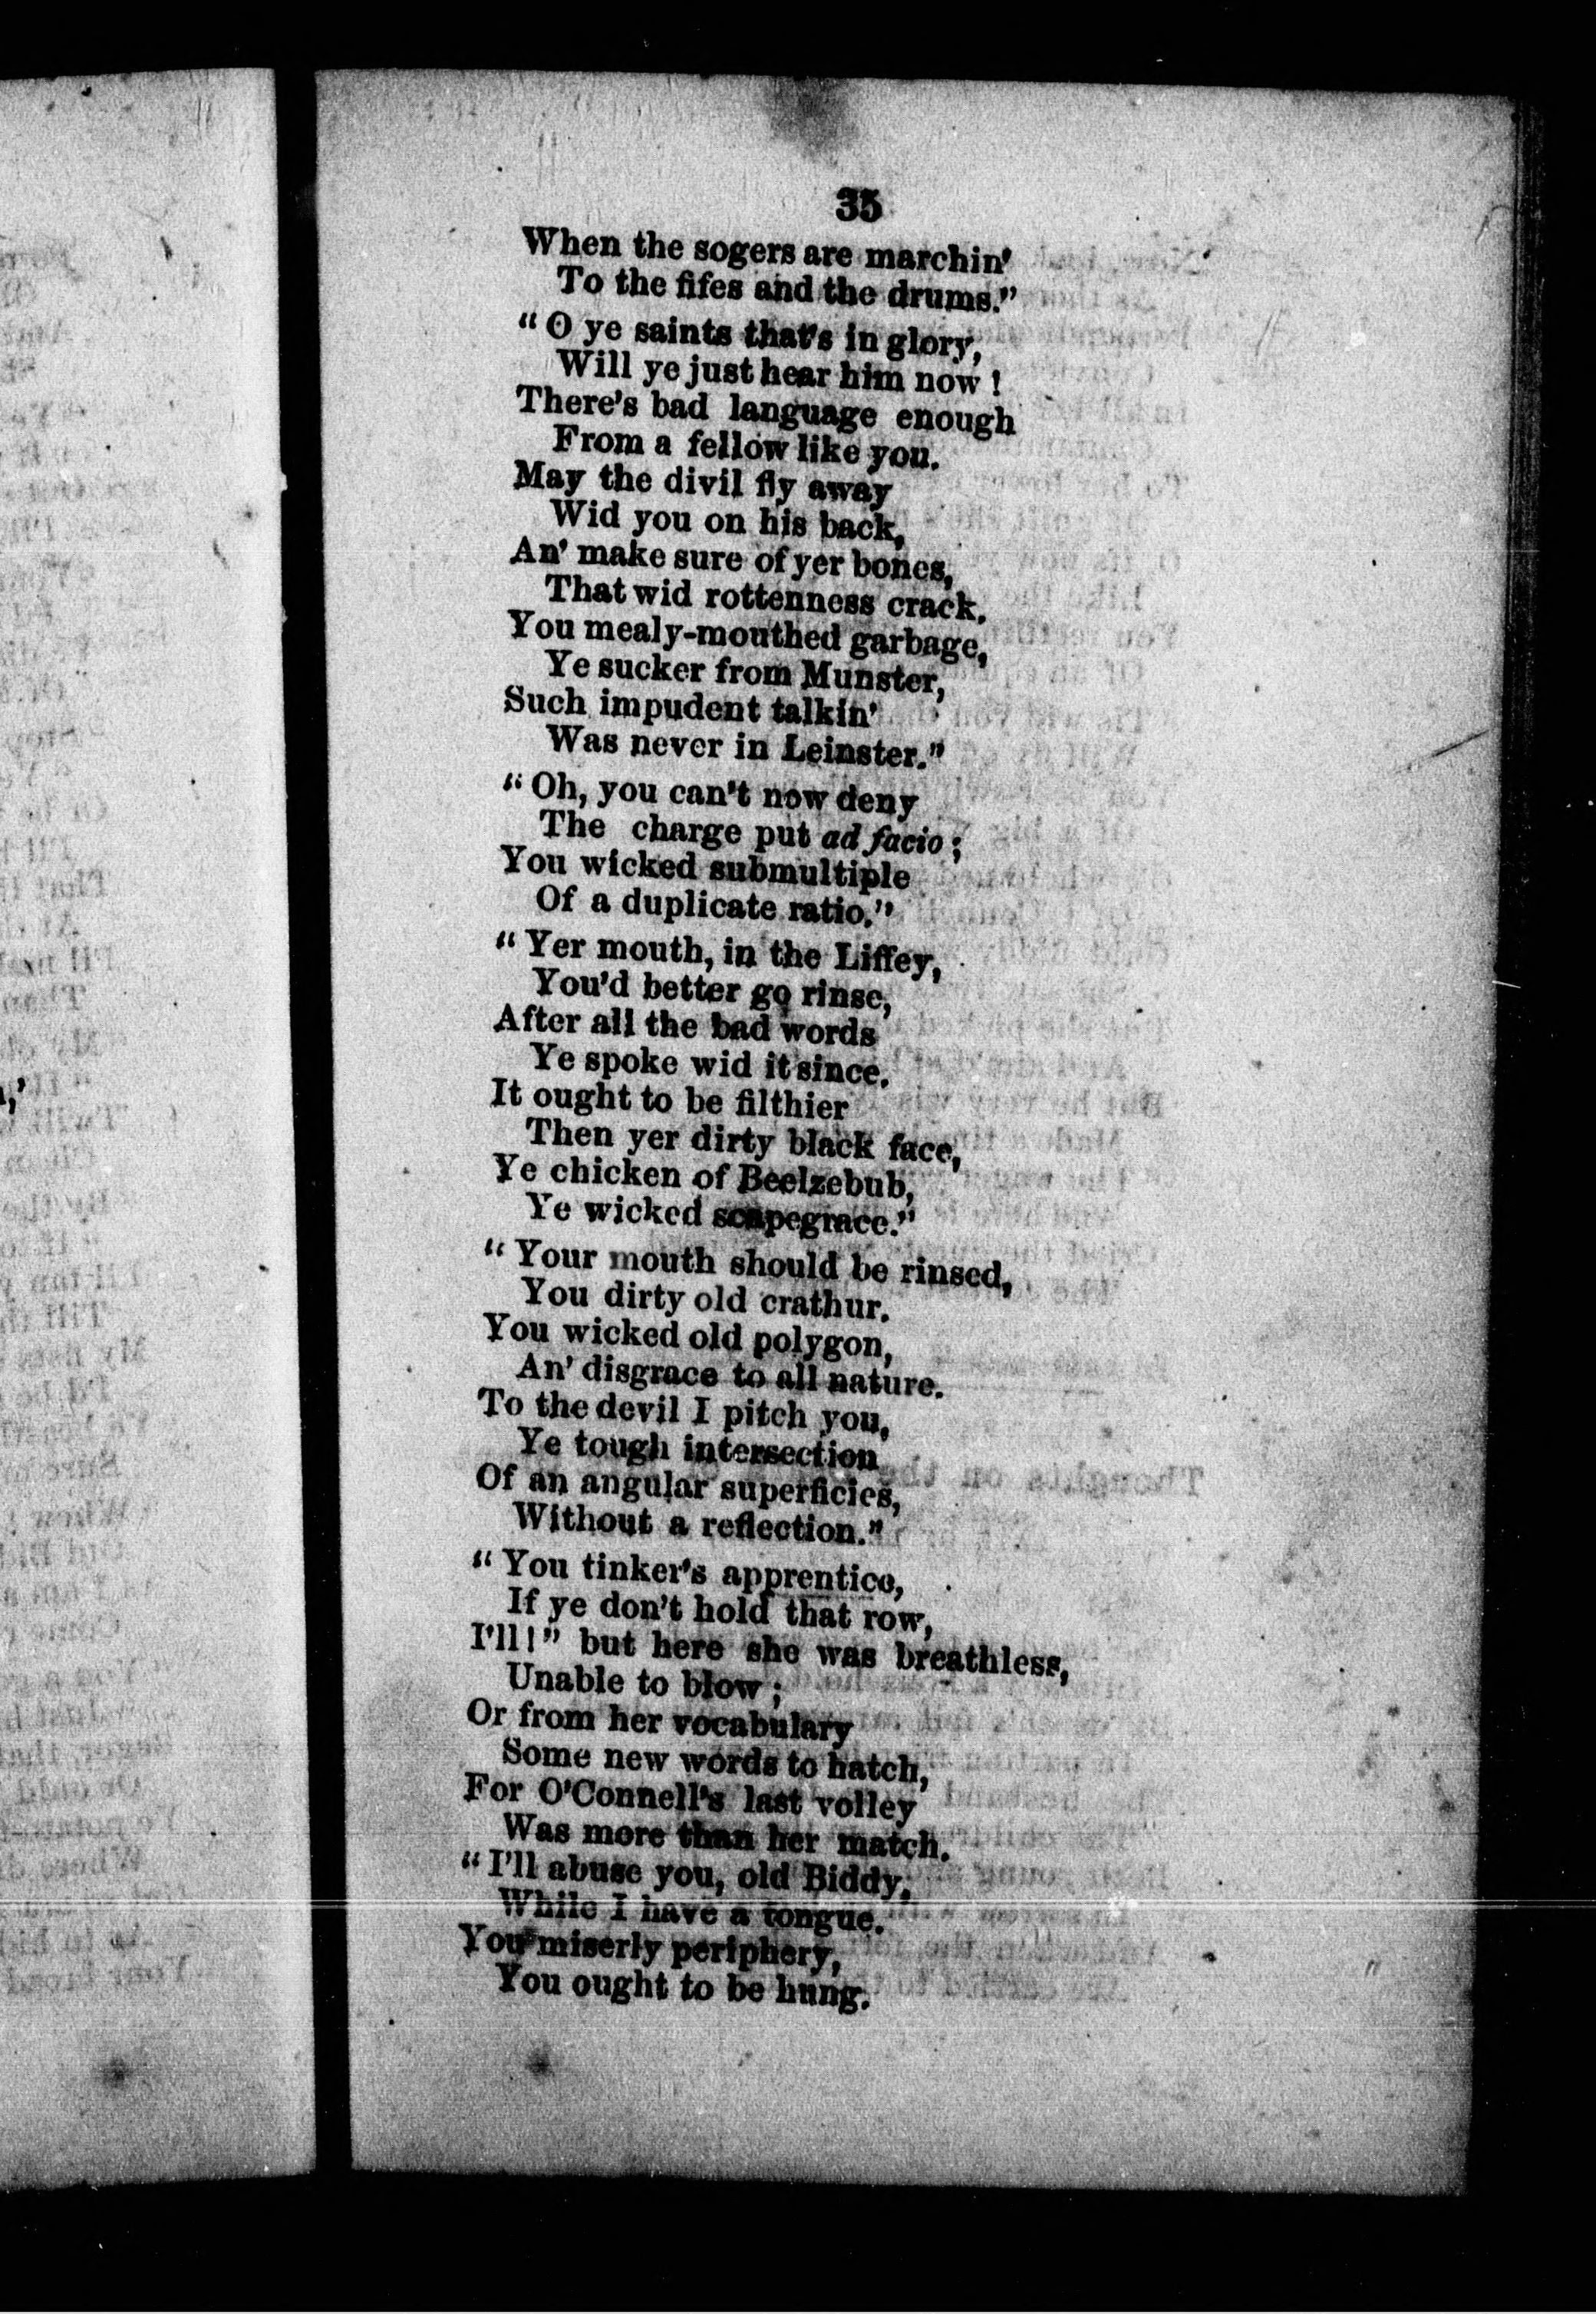 35
When the sogers are marchin'
To the fifes and the drums."
"O ye saints that's in glory,
Will ye just hear him now!
There's bad language enough
From a fellow like you.
May the divil fly away
Wid you on his back,
An' make sure of yer bones,
That wid rottenness crack.
You mealy-mouthed garbage,
Ye sucker from Munster,
Such impudent talkin'
Was never in Leinster."
"Oh, you can't now deny
The charge put ad facio;
You wicked submultiple
Of a duplicate ratio."
"Yer mouth, in the Liffey,
You'd better go rinse,
After all the bad words
Ye spoke wid it since.
It ought to be filthier
Then yer dirty black face,
Ye chicken of Beelzebub,
Ye wicked scapegrace."
"Your mouth should be rinsed,
You dirty old crathur.
You wicked old polygon,
An' disgrace to all nature.
To the devil I pitch you,
Ye tough intersection
Of an angular superficies,
Without a reflection."
"You tinker's apprentice,
If ye don't hold that row,
I'll!" but here she was breathless,
Unable to blow;
Or from her vocabulary
Some new words to hatch,
For O'Connell's last volley
Was more than her match.
"I'll abuse you, old Biddy,
While I have a tongue.
You miserly periphery,
You ought to be hung.